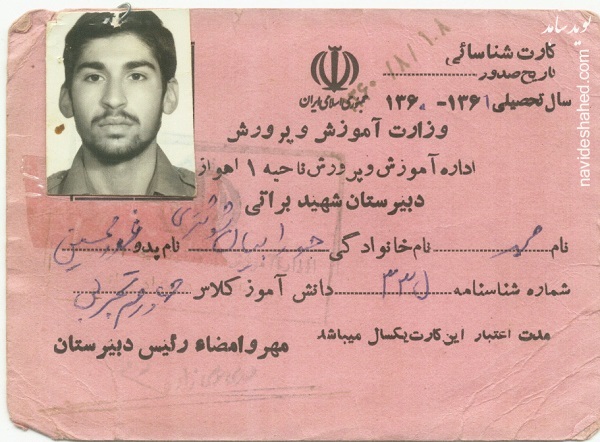 نوید شاهد
navideshahed.com
کارت شناسائی
تاریخ صدور ۱۳۶۰/۸/۱۸
جمهوری اسلامی ایران
سال تحصیلی ۱۳۶۱ - ۱۳۶۰
وزارت آموزش و پرورش
اداره آموزش و پرورش ناحیه ۱ اهواز
دبیرستان شهید براتی
نام نام خانوادگی شوشتری نام پدر غلامحسین
شماره شناسنامه ۳۳ دانش آموز کلاس تجربی
مدت اعتبار این کارت یکسال میباشد
مهر و امضاء رئیس دبیرستان